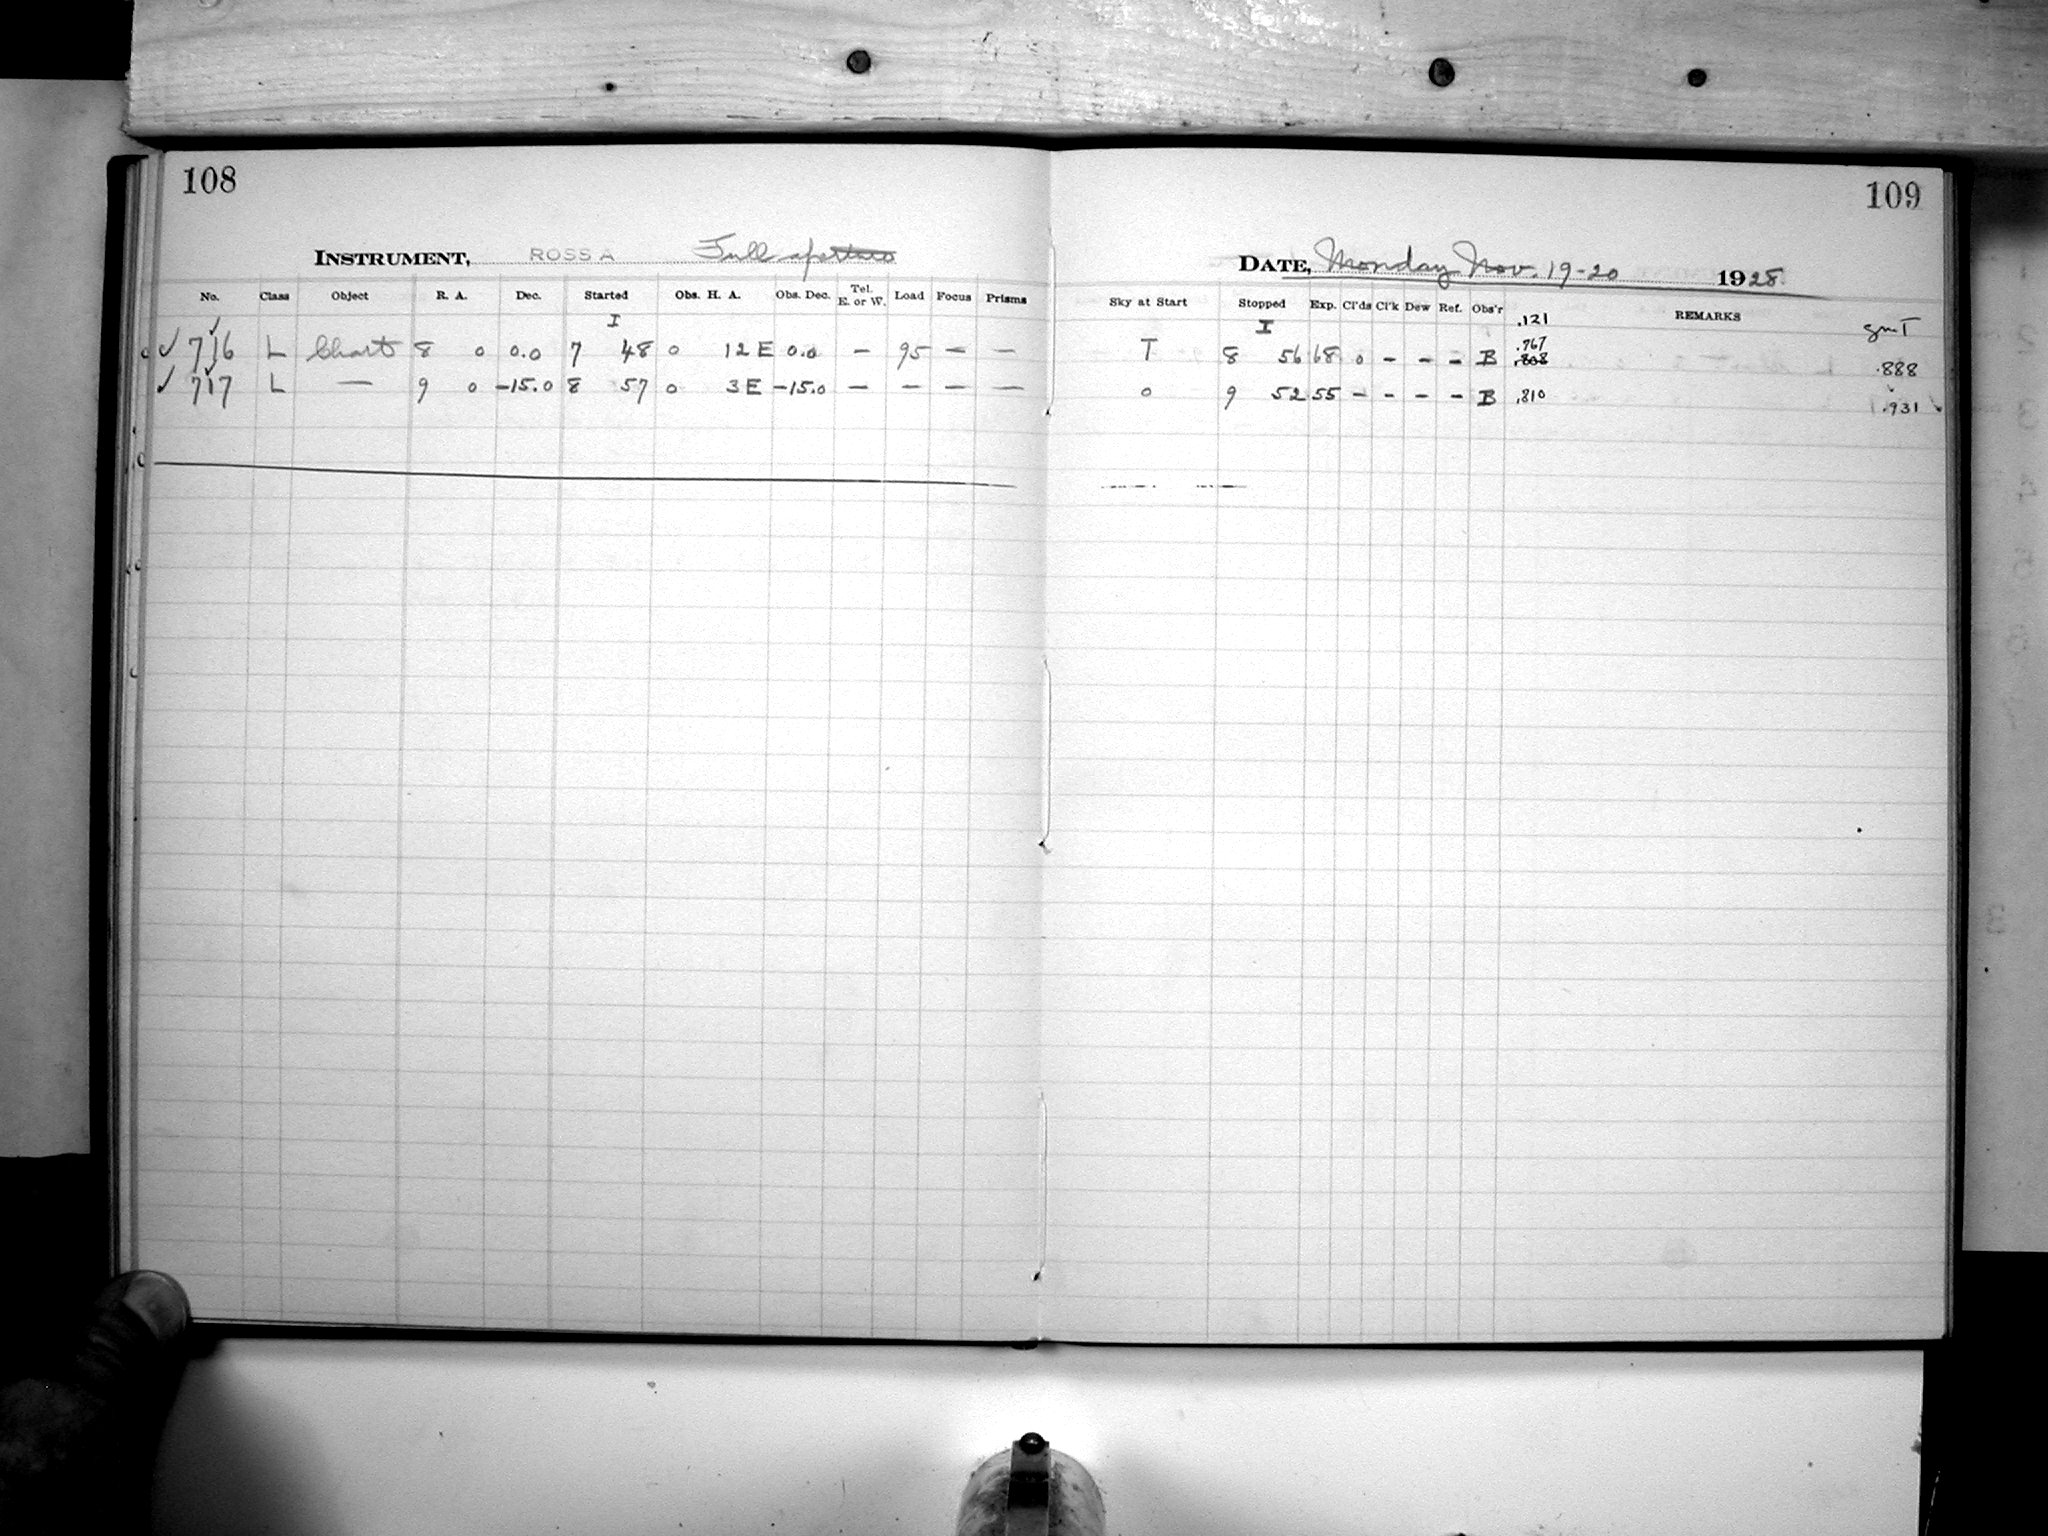 108
INSTRUMENT, ROSS A Full aperture
No. Class Object R. A. Dec. Started Obs. H. A. Obs. Dec. Tel. E. or W. Load Focus Prisms
I
✓ 716 L Chart 8 0 0.0 7 48 0 12 E 0.0 — 95 — —
✓ 717 L — 9 0 -15.0 8 57 0 3 E -15.0 — — — —
109
DATE, Monday Nov. 19-20 1928
Sky at Start Stopped Exp. Cl'ds Cl'k Dew Ref. Obs'r REMARKS
I .121 GMT
T 8 56 68 0 - - - B .767 .808 .888
0 9 52 55 - - - - B .810 .931